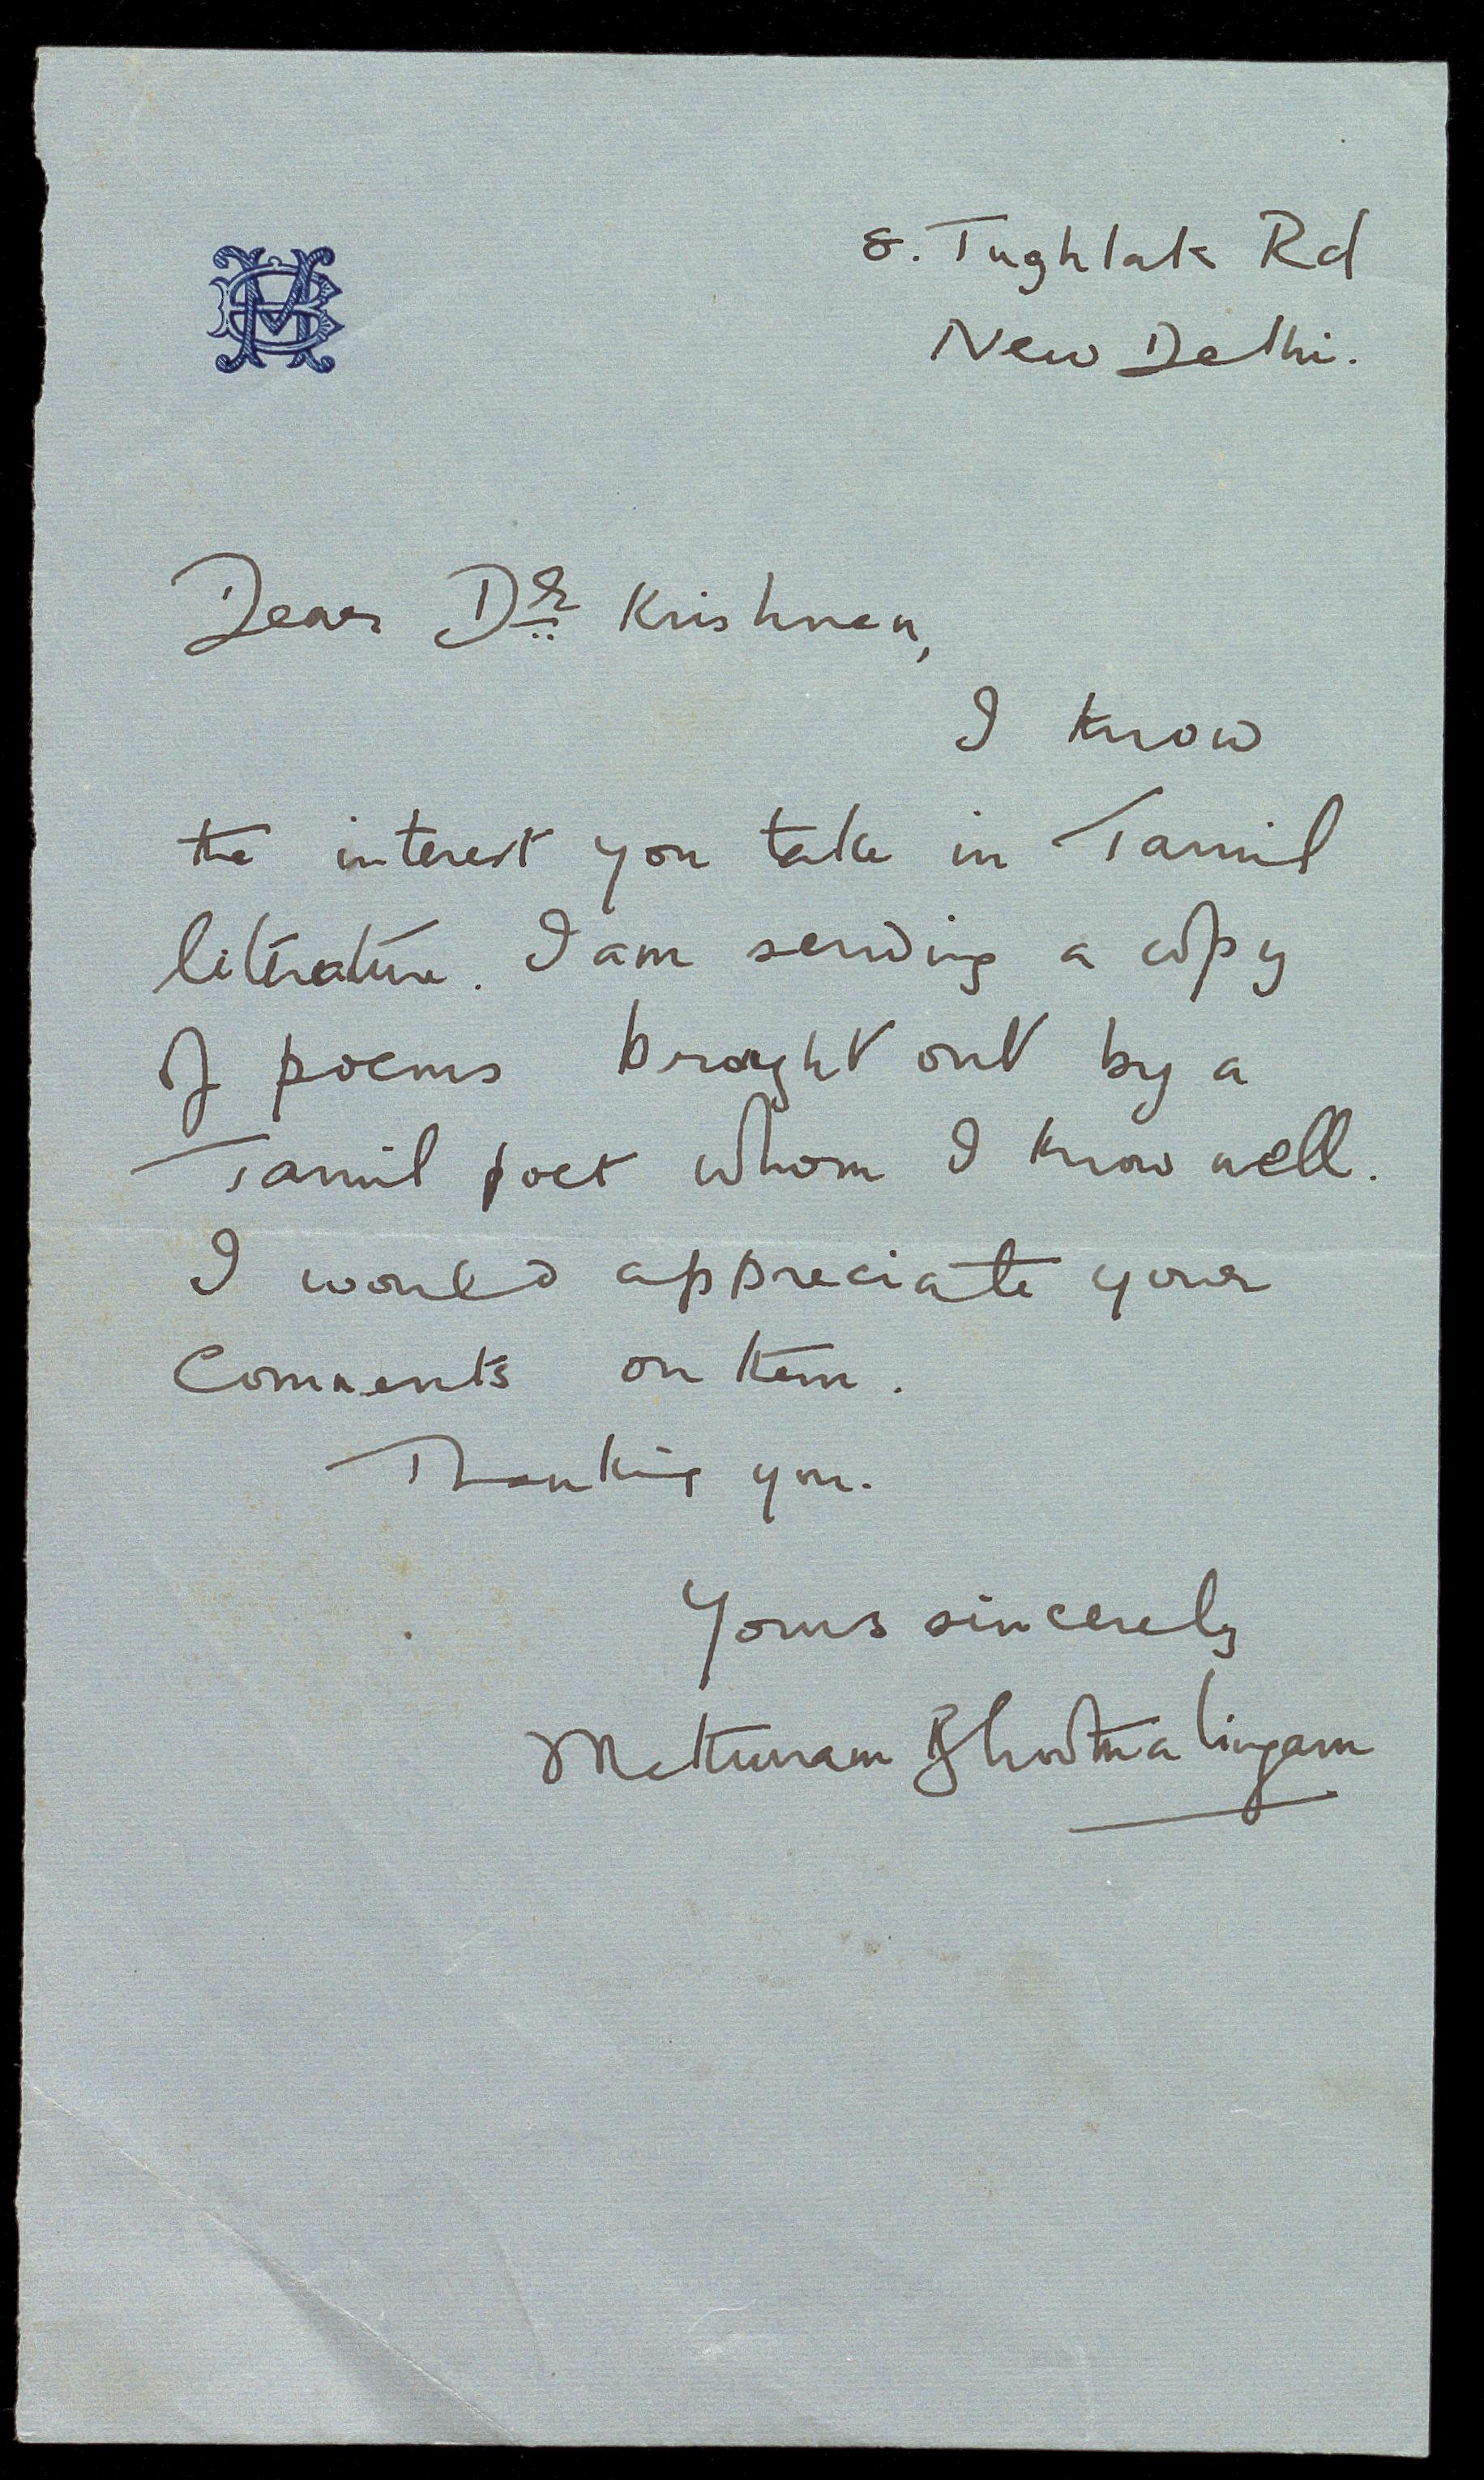 8. Tughlak Rd
New Delhi.
Dear Dr Krishnan,
I know
the interest you take in Tamil
literature. I am sending a copy
of poems brought out by a
Tamil poet whom I know well.
I would appreciate your
Comments on them.
Thanking you.
Yours sincerely
Mathuram Bhoothalingam